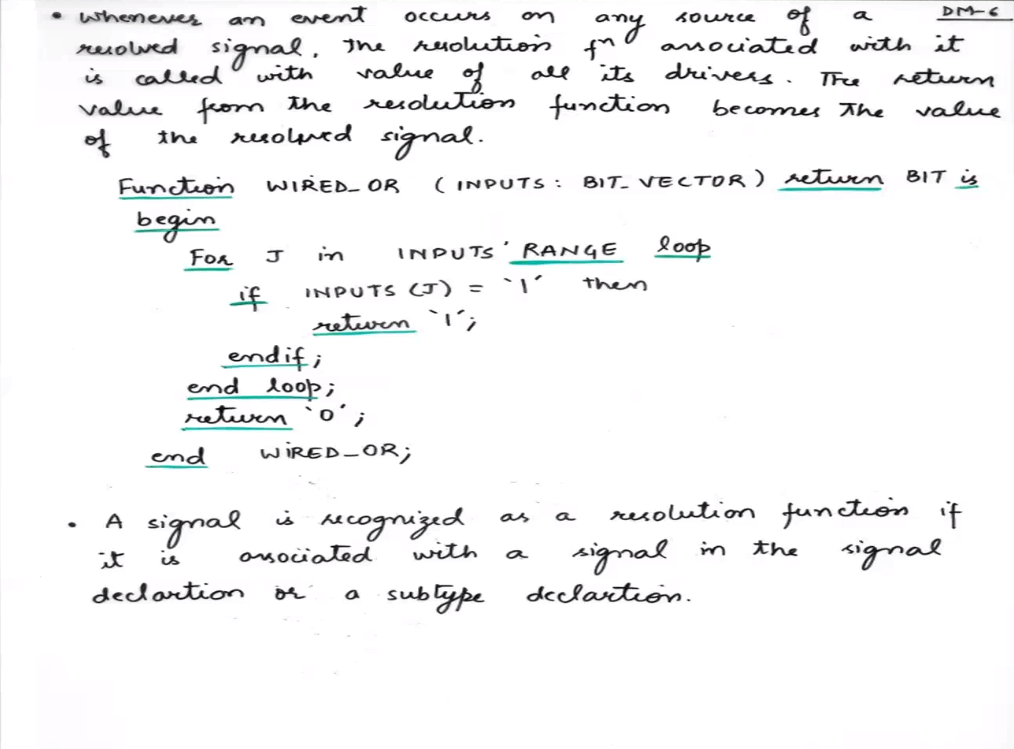 • Whenever an event occurs on any source of a DM-6
resolved signal, the resolution fⁿ associated with it
is called with value of all its drivers. The return
value from the resolution function becomes the value
of the resolved signal.
Function WIRED_OR (INPUTS: BIT_VECTOR) return BIT is
begin
For J in INPUTS'RANGE loop
if INPUTS (J) = '1' then
return '1';
endif;
end loop;
return '0';
end WIRED_OR;
• A signal is recognized as a resolution function if
it is associated with a signal in the signal
declartion or a subtype declartion.